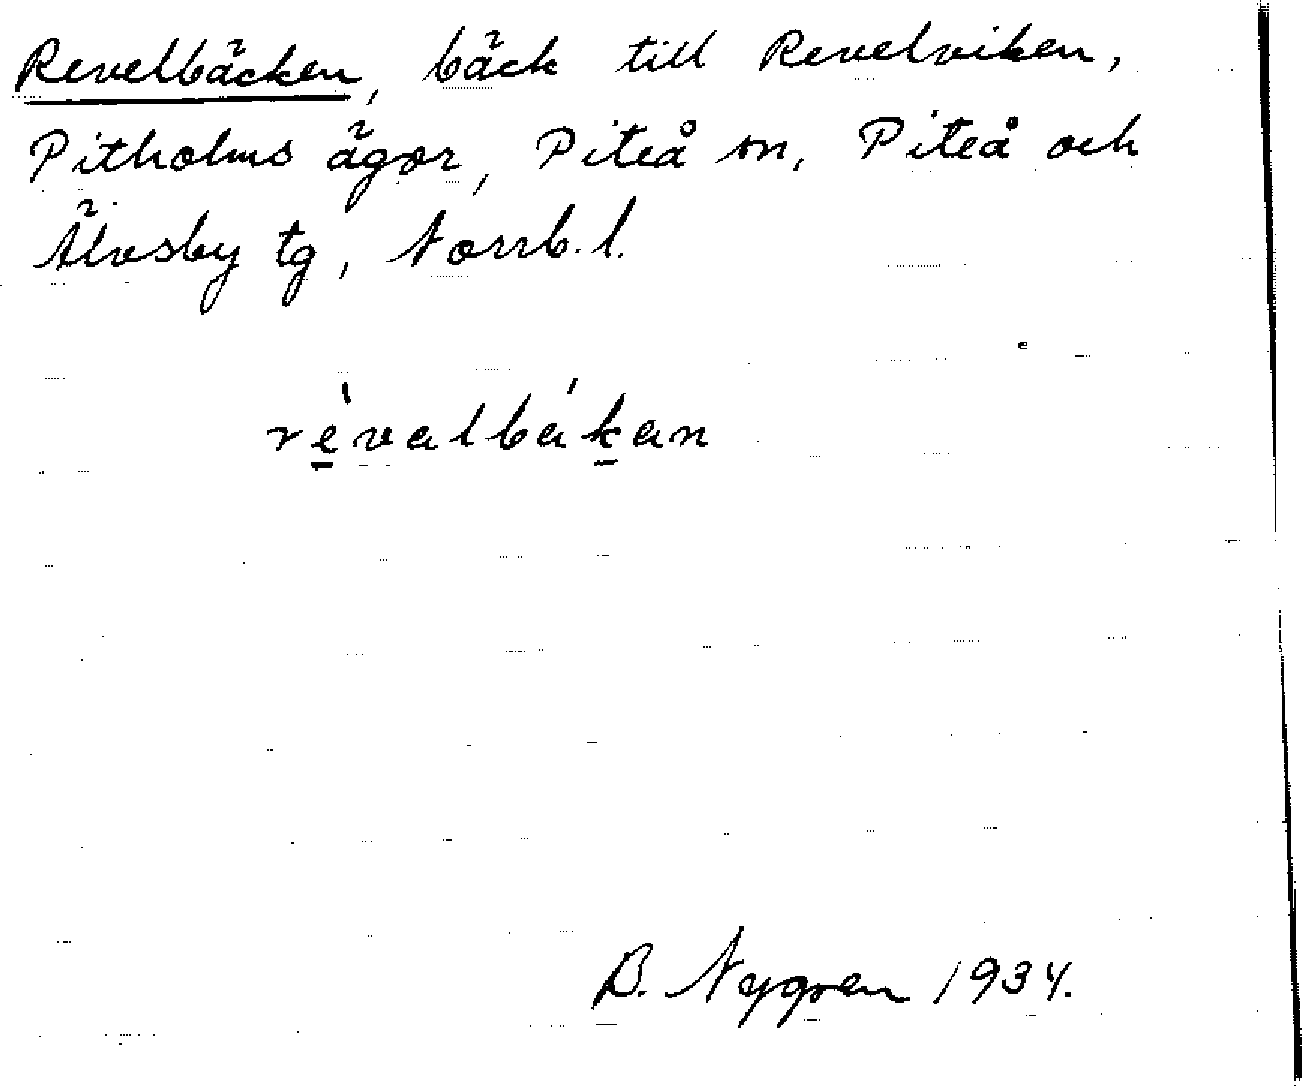 Revelbäcken, bäck till Revelviken,
Pitholms ägor, Piteå sn, Piteå och
Älvsby tg, Norrb. l.
rèvalbákan
B. Nygren 1934.